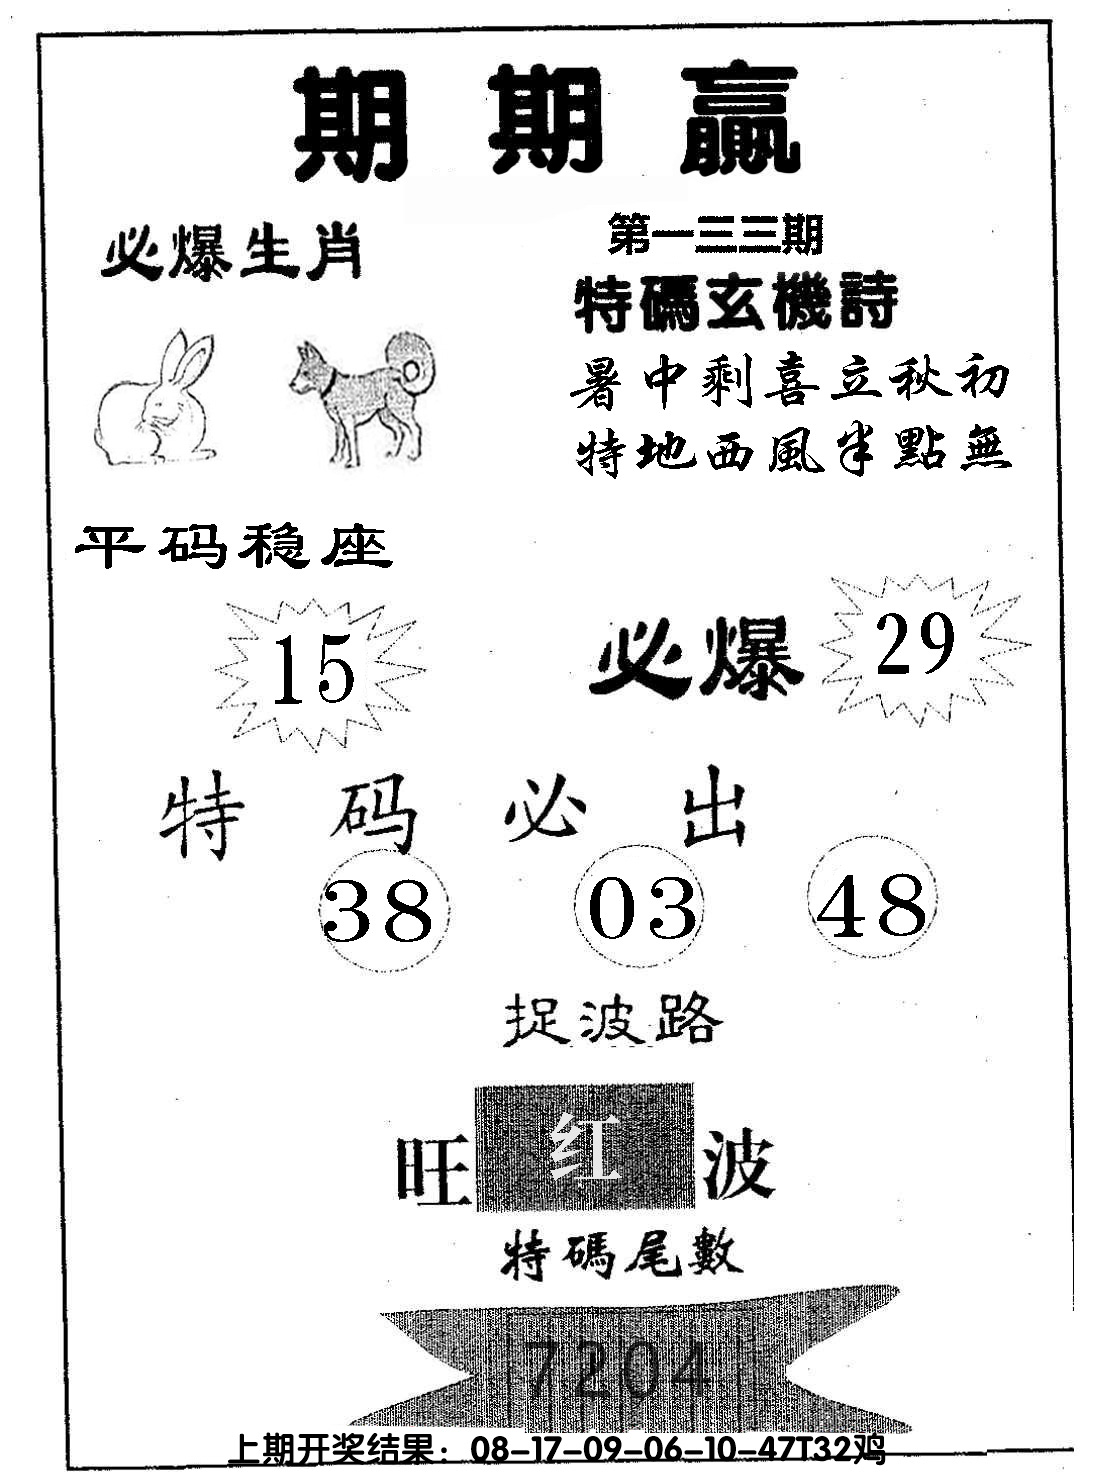 期期赢
第一三三期
必爆生肖
特碼玄機詩
暑中剩喜立秋初
特地西風半點無
平码稳座
15
必爆 29
特码必出
38 03 48
捉波路
旺红波
特碼尾數
7204
上期开奖结果：08-17-09-06-10-47T32鸡